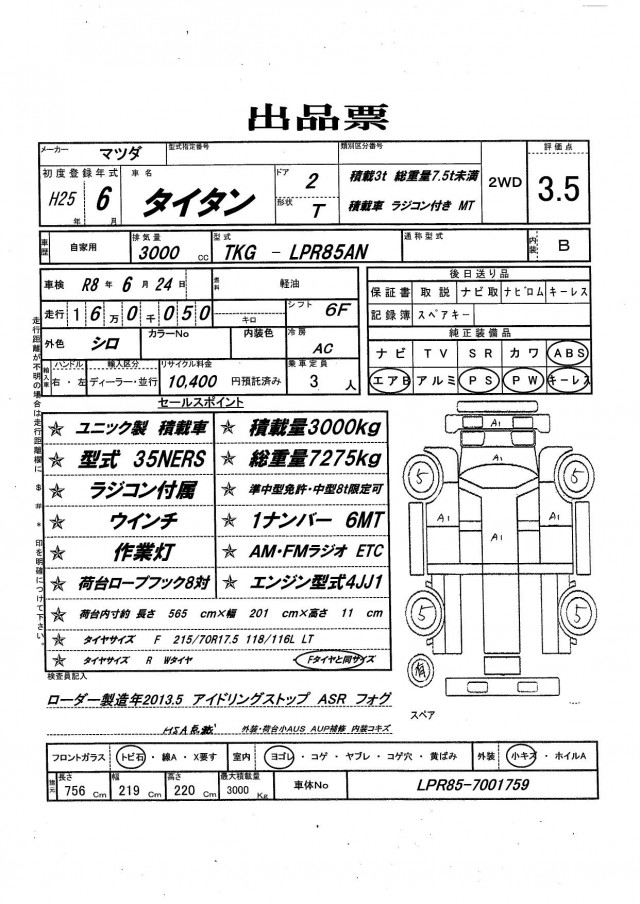 出品票
メーカー マツダ 型式指定番号 類別区分番号 評価点
初度登録年式 H25年 6月 車名 タイタン ドア 2 形状 T 積載3t 総重量7.5t未満 2WD 3.5
積載車 ラジコン付き MT
車歴 自家用 排気量 3000 cc 型式 TKG - LPR85AN 通称型式 内装 B
車検 R8年 6月 24日 燃料 軽油 後日送り品
保証書 取説 ナビ取 ナビロム キーレス
走行 16万0千050 キロ シフト 6F 記録簿 スペアキー
外色 シロ カラーNo 内装色 冷房 AC 純正装備品
ナビ TV SR カワ ABS
輸入車 ハンドル 右・左 輸入区分 ディーラー・並行 リサイクル料金 10,400 円預託済み 乗車定員 3人 エアB アルミ PS PW キーレス
セールスポイント
☆ ユニック製 積載車 ☆ 積載量3000kg
☆ 型式 35NERS ☆ 総重量7275kg
☆ ラジコン付属 ☆ 準中型免許・中型8t限定可
☆ ウインチ ☆ 1ナンバー 6MT
☆ 作業灯 ☆ AM・FMラジオ ETC
☆ 荷台ロープフック8対 ☆ エンジン型式4JJ1
☆ 荷台内寸約 長さ 565 cm×幅 201 cm×高さ 11 cm
☆ タイヤサイズ F 215/70R17.5 118/116L LT
☆ タイヤサイズ R Wタイヤ Fタイヤと同サイズ
走行距離が不明の場合は走行距離欄に $ # * 印を明確につけて下さい。
A1
5 A1 5
A1 A1 A1
5 5
有
スペア
検査員記入
ローダー製造年2013.5 アイドリングストップ ASR フォグ
外装・荷台小AUS AUP補修 内装コキズ
フロントガラス トビ石・線A・X要す 室内 ヨゴレ・コゲ・ヤブレ・コゲ穴・黄ばみ 外装 小キズ・ホイルA
諸元 長さ 756 Cm 幅 219 Cm 高さ 220 Cm 最大積載量 3000 Kg 車体No LPR85-7001759